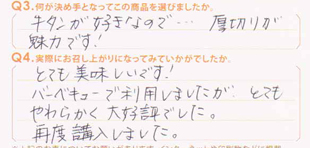 Q3.何が決め手となってこの商品を選びましたか。
牛タンが好きなので… 厚切りが
魅力です!
Q4.実際にお召し上がりになってみていかがでしたか。
とても美味しいです!
バーベキューで利用しましたが、とても
やわらかく大好評でした。
再度購入しました。